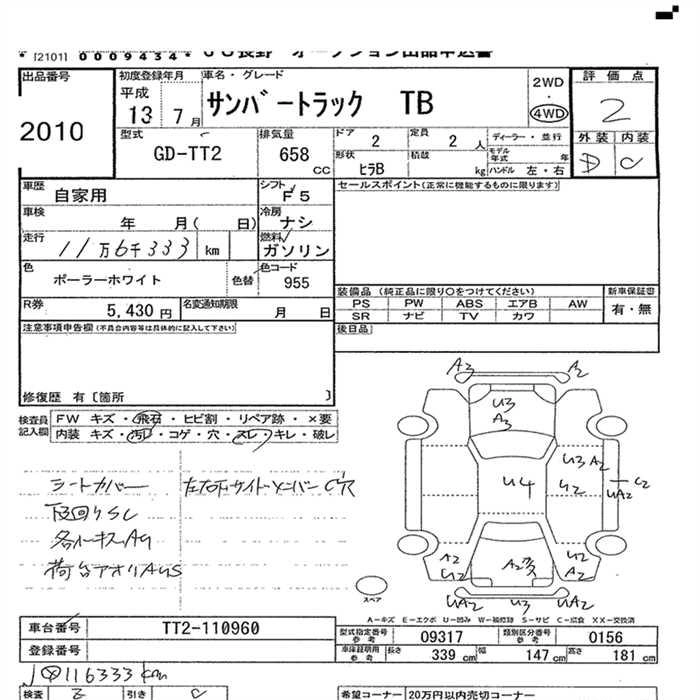 * [2101] 0009434* UC長野 オークション出品申込書
出品番号
2010
初度登録年月
平成
13 7月
車名・グレード
サンバートラック TB
2WD
・
4WD
評価点
2
外装 内装
D C
型式
GD-TT2
排気量
658
CC
ドア
2
定員
2人
ディーラー・並行
形状
ヒラB
積載
kg
モデル年式 年
ハンドル 左・右
車歴
自家用
シフト
F5
セールスポイント(正常に機能するものに限ります)
車検
年 月( 日)
冷房
ナシ
走行
11万6千333 km
燃料
ガソリン
色
ポーラーホワイト
色替
色コード
955
装備品 (純正品に限り○をつけてください)
新車保証書
PS PW ABS エアB AW
有・無
SR ナビ TV カワ
R券
5,430円
名変通知期限
月 日
後日品
注意事項申告欄(不具合内容等は具体的に記入して下さい)
修復歴 有〔箇所 〕
検査員記入欄
FW キズ・飛石・ヒビ割・リペア跡・×要
内装 キズ・汚レ・コゲ・穴・スレ・キレ・破レ
シートカバー
下回りSC
各イーキズA4
荷台アオリAUS
左右下サイドメンバーC穴
A3 A2
U3
A3
U3 A2
U4
U2
C2
UA2
A2
U2
A2
U2
A2
UA2 U3 UA2
スペア
A-キズ E-エクボ U-凹み W-補修跡 S-サビ C-腐食 XX-交換済
車台番号
TT2-110960
登録番号
型式指定番号
参考
09317
類別区分番号
参考
0156
車庫証明用
参考
長さ
339 cm
幅
147 cm
高さ
181 cm
116333 km
検査
引き
C
希望コーナー
20万円以内売切コーナー